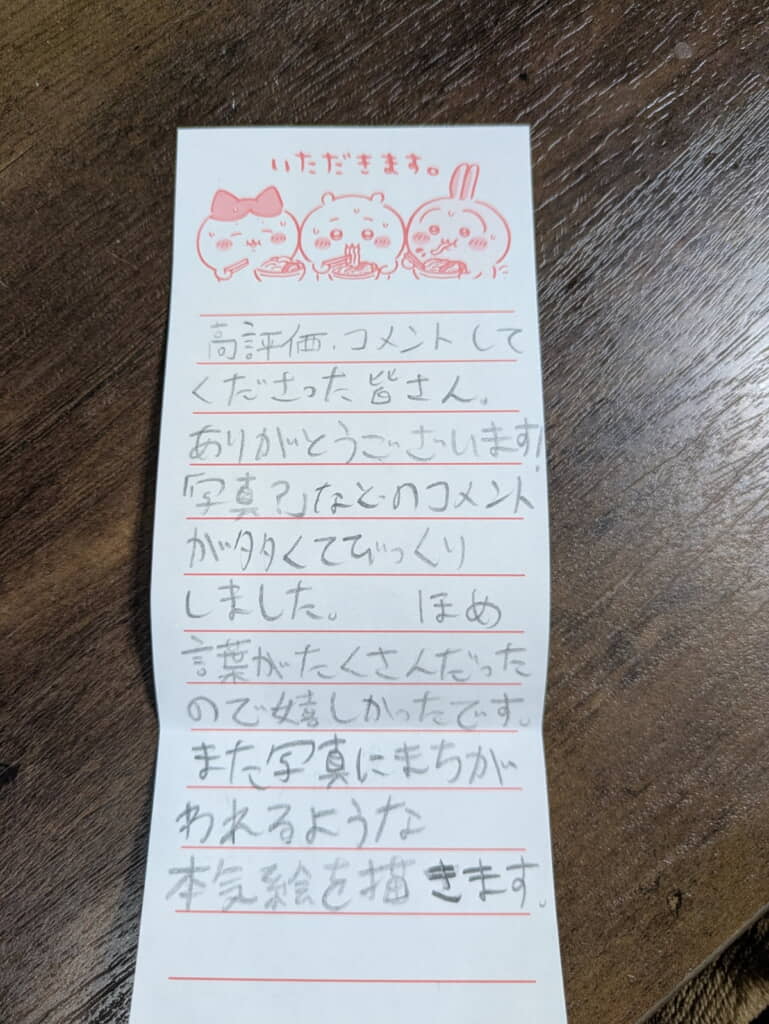 いただきます。
高評価.コメントして
くださった皆さん。
ありがとうございます!
「写真?」などのコメント
が多くてびっくり
しました。 ほめ
言葉がたくさんだった
ので嬉しかったです。
また写真にまちが
われるような
本気絵を描きます。